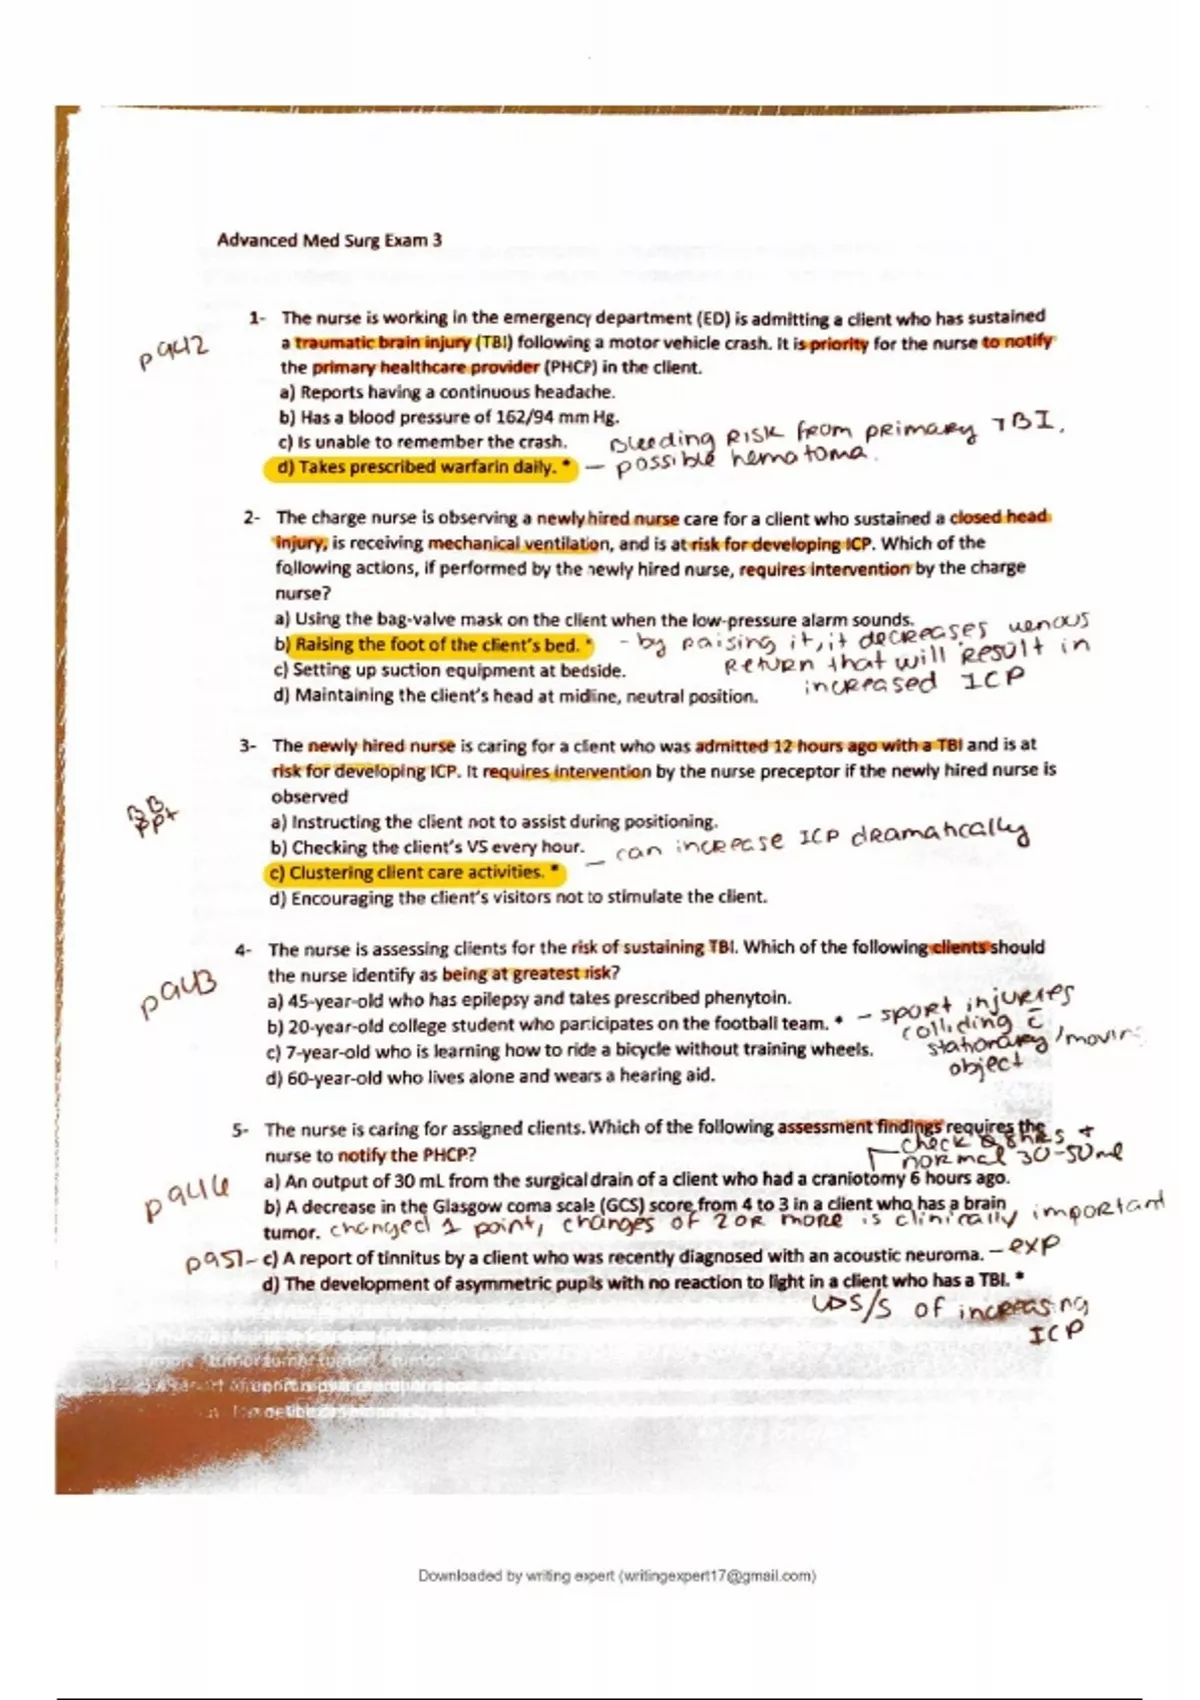 Advanced Med Surg Exam 3
1- The nurse is working in the emergency department (ED) is admitting a client who has sustained
p942
a traumatic brain injury (TBI) following a motor vehicle crash. It is priority for the nurse to notify
the primary healthcare provider (PHCP) in the client.
a) Reports having a continuous headache.
b) Has a blood pressure of 162/94 mm Hg.
c) Is unable to remember the crash.
Bleeding RISK from primary TBI.
d) Takes prescribed warfarin daily. * – possible hematoma.
2- The charge nurse is observing a newly hired nurse care for a client who sustained a closed head
injury, is receiving mechanical ventilation, and is at risk for developing ICP. Which of the
following actions, if performed by the newly hired nurse, requires intervention by the charge
nurse?
a) Using the bag-valve mask on the client when the low-pressure alarm sounds.
b) Raising the foot of the client's bed. * - by raising it, it decreases venous
return that will result in
increased ICP
c) Setting up suction equipment at bedside.
d) Maintaining the client's head at midline, neutral position.
3- The newly hired nurse is caring for a client who was admitted 12 hours ago with a TBI and is at
risk for developing ICP. It requires intervention by the nurse preceptor if the newly hired nurse is
observed
BB
PPt
a) Instructing the client not to assist during positioning.
b) Checking the client's VS every hour.
– can increase ICP dramatically
c) Clustering client care activities. *
d) Encouraging the client's visitors not to stimulate the client.
4- The nurse is assessing clients for the risk of sustaining TBI. Which of the following clients should
the nurse identify as being at greatest risk?
p943
a) 45-year-old who has epilepsy and takes prescribed phenytoin.
b) 20-year-old college student who participates on the football team. * – sport injuries
colliding c̄
stationary/movin
object
c) 7-year-old who is learning how to ride a bicycle without training wheels.
d) 60-year-old who lives alone and wears a hearing aid.
5- The nurse is caring for assigned clients. Which of the following assessment findings requires the
nurse to notify the PHCP?
check Q 8hrs +
normal 30-50ml
a) An output of 30 mL from the surgical drain of a client who had a craniotomy 6 hours ago.
p946
b) A decrease in the Glasgow coma scale (GCS) score from 4 to 3 in a client who has a brain
tumor. changed 1 point, changes of 2 or more is clinically important
p951– c) A report of tinnitus by a client who was recently diagnosed with an acoustic neuroma. – exp
d) The development of asymmetric pupils with no reaction to light in a client who has a TBI. *
S/S of increasing
ICP
Downloaded by writing expert (writingexpert17@gmail.com)